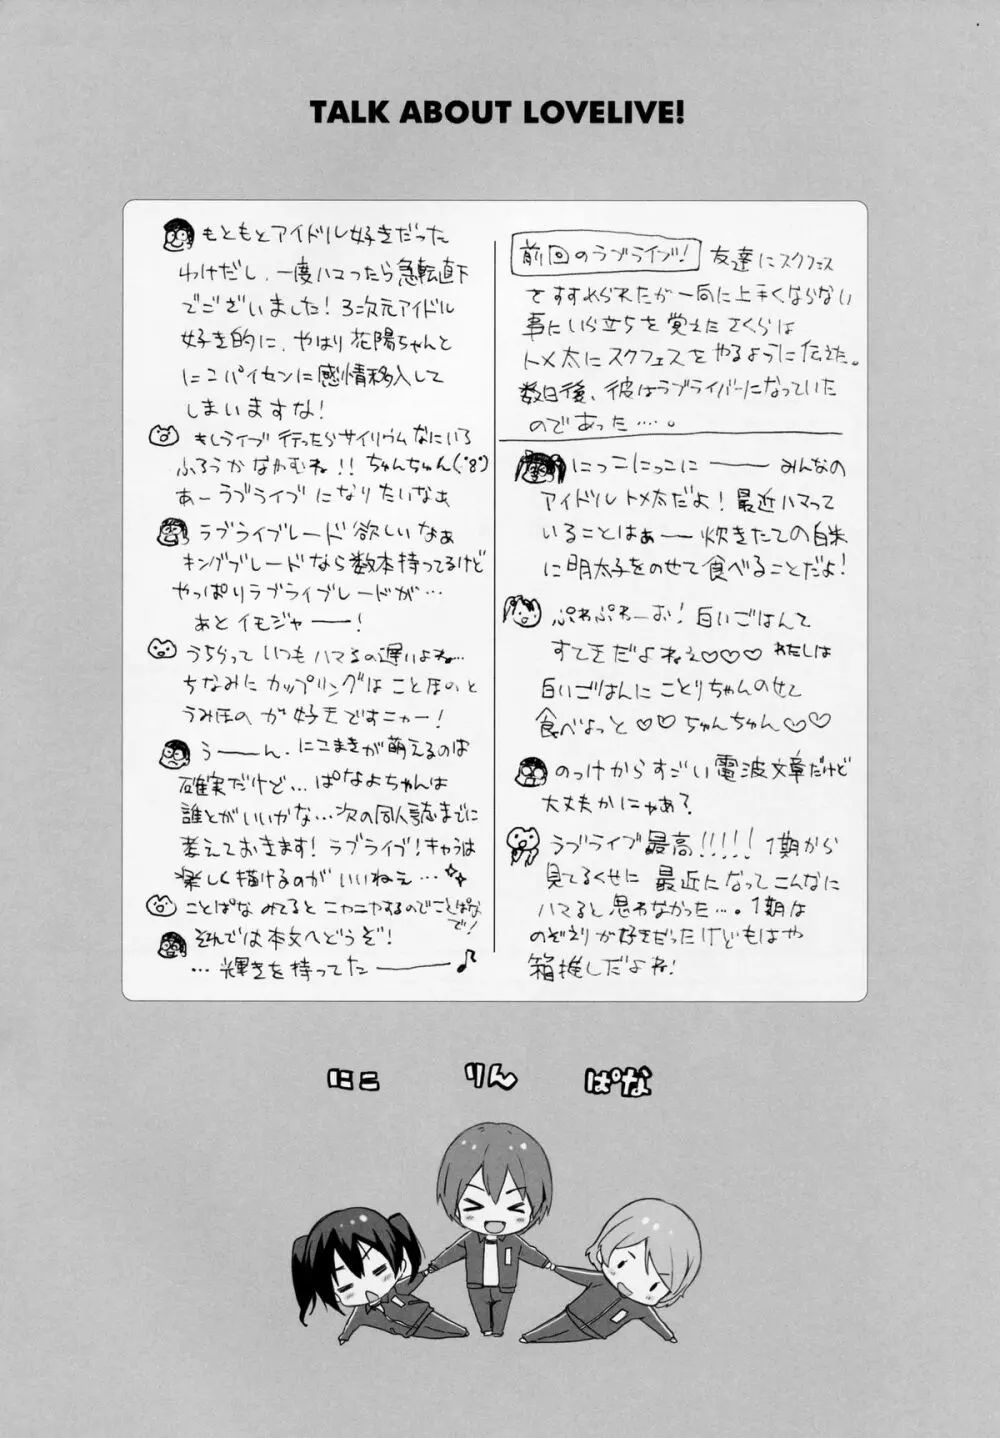 TALK ABOUT LOVELIVE!
前回のラブライブ! 友達にスクフェス
をすすめられたが一向に上手くならない
事にいら立ちを覚えたさくらは
トメ太にスクフェスをやるように伝えた。
数日後、彼はラブライバーになっていた
のであった…。
にっこにっこにーーー みんなの
アイドルトメ太だよ!最近ハマって
いることはぁーー炊きたての白米
に明太子をのせて食べることだよ!
ぷわぷわーお!白いごはんて
すてきだよねぇ♡♡♡わたしは
白いごはんにことりちゃんのせて
食べよっと♡♡ちゃんちゃん♡♡
のっけからすごい電波文章だけど
大丈夫かにゃあ?
ラブライブ最高!!!!!1期から
見てるくせに最近になってこんなに
ハマると思わなかった…。1期は
のぞえりが好きだったけどもはや
箱推しだよね!
もともとアイドル好きだった
わけだし、一度ハマったら急転直下
でございました!3次元アイドル
好き的に、やはり花陽ちゃんと
にこパイセンに感情移入して
しまいますな!
もしライブ行ったらサイリウムなにいろ
ふろうかなかむね!!ちゅんちゅん(・8・)
あーラブライブになりたいなぁ
ラブライブレード欲しいなぁ
キングブレードなら数本持ってるけど
やっぱりラブライブレードが…
あとイモジャーー!
うちらっていつもハマるの遅いよね…
ちなみにカップリングはことほのと
うみほのが好きですニャー!
うーーん、にこまきが萌えるのは
確実だけど…ぱなよちゃんは
誰とがいいかな…次の同人誌までに
考えておきます!ラブライブ!キャラは
楽しく描けるのがいいねぇ…
ことぱなみてるとニヤニヤするのでことぱな
で!
そんでは本文へどうぞ!
…輝きを持ってたーーー♪
にこ りん ぱな